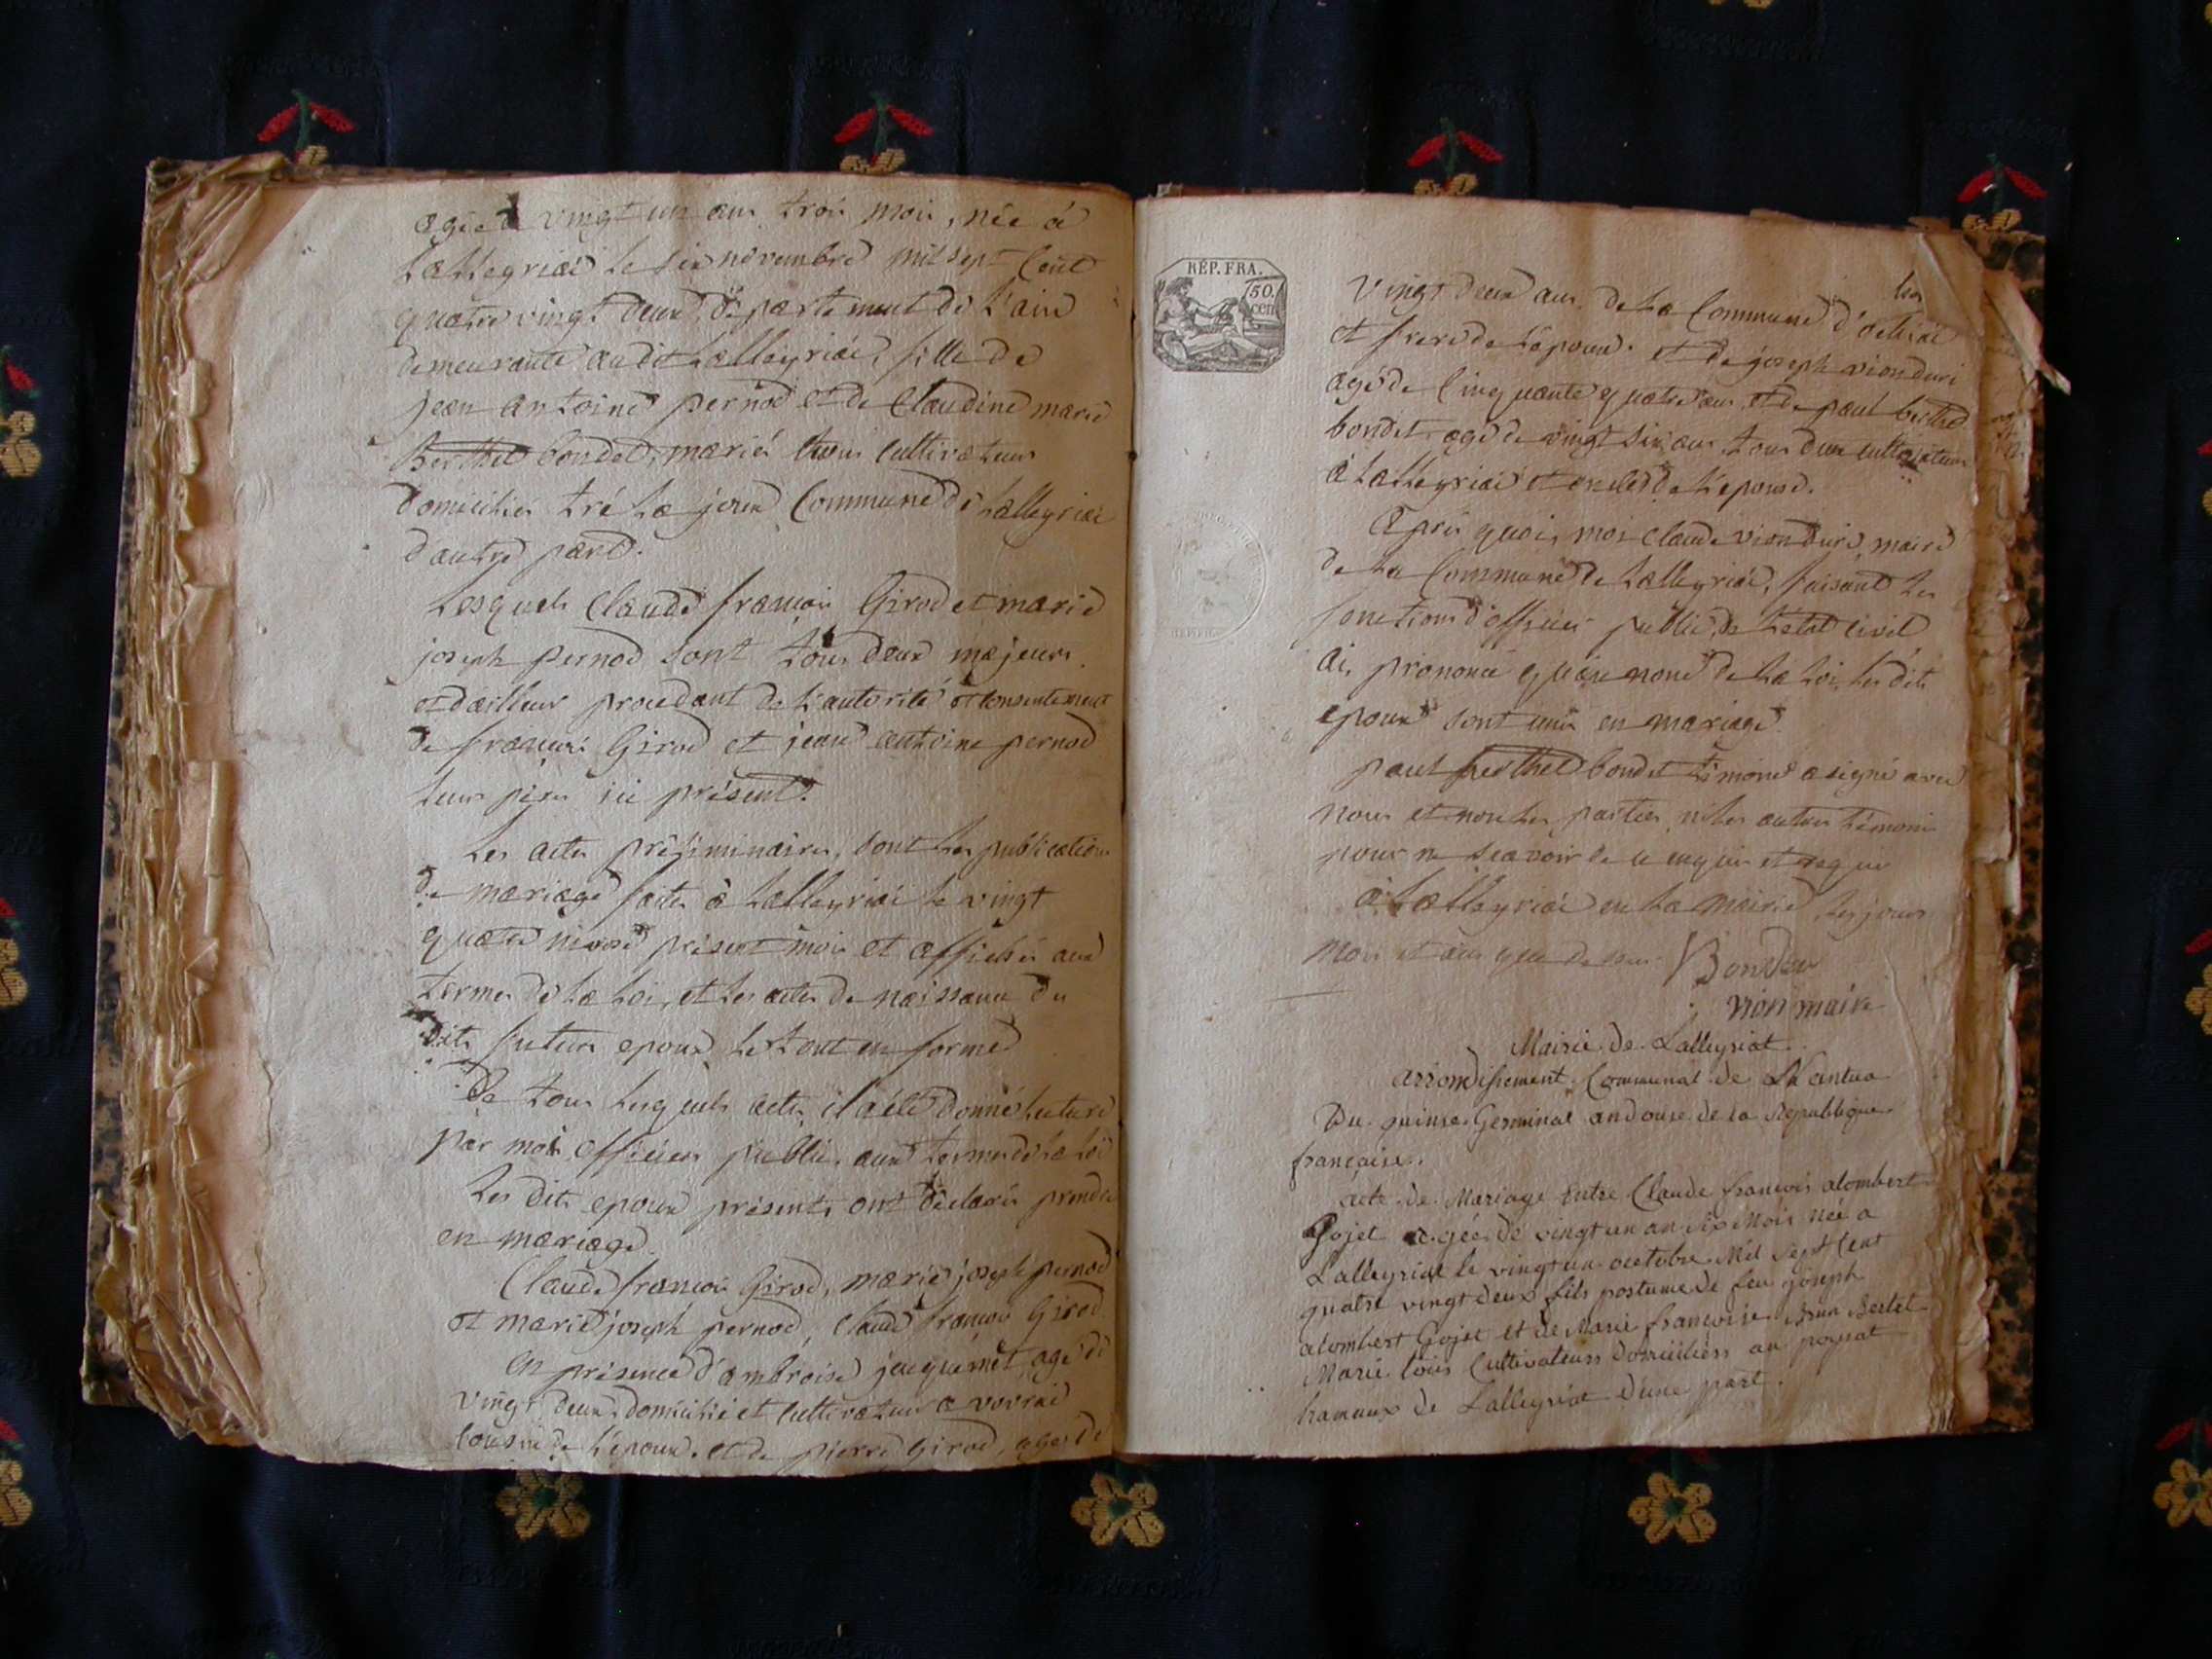 agée de vingt un ans trois mois, née à
Lalleyriat le six novembre mil sept cent
quatre vingt deux, département de l'ain
demeurante audit Lalleyriat, fille de
jean antoine pernod et de Claudine marie
Berthet bondet, mariés tous cultivateurs
domiciliés commune de Lalleyriat
d'autre part.
Lesquels Claude françois Girod et marie
joseph pernod sont tous deux majeurs
et dailleur procedant de l'autorité et consentement
de françois Girod et jean antoine pernod
leurs péres ici présent.
Les actes préliminaires, sont les publications
de mariage faites à Lalleyriat le vingt
quatre nivose présent mois et affichés aux
termes de la loi, et les actes de naissance du
dits futurs epoux le tout en forme
De tous lesquels actes il a été donné lecture
par moi officier public aux termes de la loi
Les dits epoux présents ont déclarés prendre
en mariage
Claude françois Girod, marie joseph pernod
et marie joseph pernod, claude françois Girod
en présence d'ambroise jacquemet, agé de
vingt deux, domicilié et cultivateur a
cousin de l'époux. et de pierre Girod, agé de
RÉP. FRA.
50.
cen
vingt deux ans de la Commune
et frere de l'époux. et de joseph vionduri
agé de Cinquante quatre ans, et de paul berthet
bondet, agé de vingt six ans tous deux cultivateurs
à Lalleyriat et oncles de l'epouse.
Après quoi, moi Claude vion duré, maire
de la Commune de Lalleyriat, faisant les
fonctions d'officier public de l'etat civil
ai, prononcé qu'au nom de la loi, les dits
epoux sont unis en mariage
paul berthet bondet témoins a signé avec
nous et non les parties, ni les autres témoins
pour ne sçavoir de ce enquis et requis
à Lalleyriat en la mairie, les jours
mois et ans que dessus. Bondet
vion maire
Mairie de Lalleyriat.
arrondissement Communal de Nantua
Du quinse Germinal an douse de la Republique
française.
acte de Mariage Entre Claude françois alombert
Gojet agée de vingt un an six mois née a
Lalleyriat le vingt un octobre Mil sept Cent
quatre vingt deux fils postume de feu joseph
alombert Gojet et de Marie françoise
Marié tous Cultivateurs Domiciliers au poysat
hamaux de Lalleyriat d'une part.